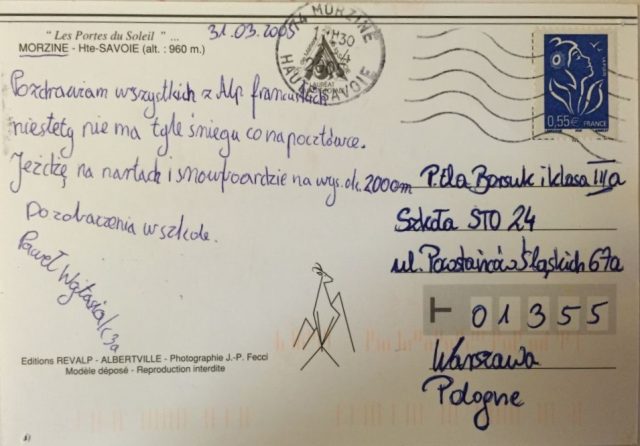 " Les Portes du Soleil " ...
MORZINE - Hte-SAVOIE (alt. : 960 m.)
31.03.2005
74 MORZINE
HAUTE-SAVOIE
0,55€ FRANCE
Pozdrawiam wszystkich z Alp francuskich
niestety nie ma tyle śniegu co na pocztówce.
Jeżdżę na nartach i snowboardzie na wys. ok. 2000m
Pozdrowienia w szkole.
Paweł
3a
P. Ela Borsuk i klasa IIIa
Szkoła STO 24
ul. Powstańców Śląskich 67a
01355
Warszawa
Pologne
Editions REVALP - ALBERTVILLE - Photographie J.-P. Fecci
Modèle déposé - Reproduction interdite